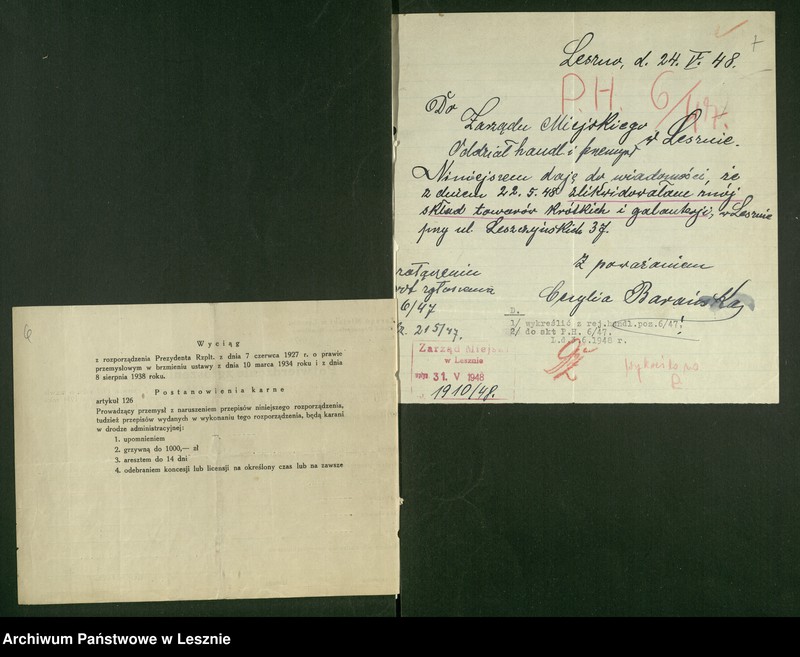 6
Wyciąg
z rozporządzenia Prezydenta Rzplt. z dnia 7 czerwca 1927 r. o prawie
przemysłowym w brzmieniu ustawy z dnia 10 marca 1934 roku i z dnia
8 sierpnia 1938 roku.
Postanowienia karne
artykuł 126
Prowadzący przemysł z naruszeniem przepisów niniejszego rozporządzenia,
tudzież przepisów wydanych w wykonaniu tego rozporządzenia, będą karani
w drodze administracyjnej:
1. upomnieniem
2. grzywną do 1000,— zł
3. aresztem do 14 dni
4. odebraniem koncesji lub licensji na określony czas lub na zawsze
Leszno, d. 24. V. 48.
P.H. 6/47.
Do
Zarządu Miejskiego
w Lesznie.
Oddział handl i przemysł
Niniejszem daję do wiadomości, że
z dniem 22.5.48 zlikwidowałam mój
skład towarów krótkich i galanterji, w Lesznie
przy ul. Leszczyńskich 37.
Z poważaniem
Cecylia Barańska
załączeniu
zgłoszenia
6/47
215/47.
D.
1/ wykreślić z rej. handl. poz. 6/47.
2/ do akt P.H. 6/47.
L.d. 6.1948 r.
Zarząd Miejski
w Lesznie
31. V 1948
1910/48.